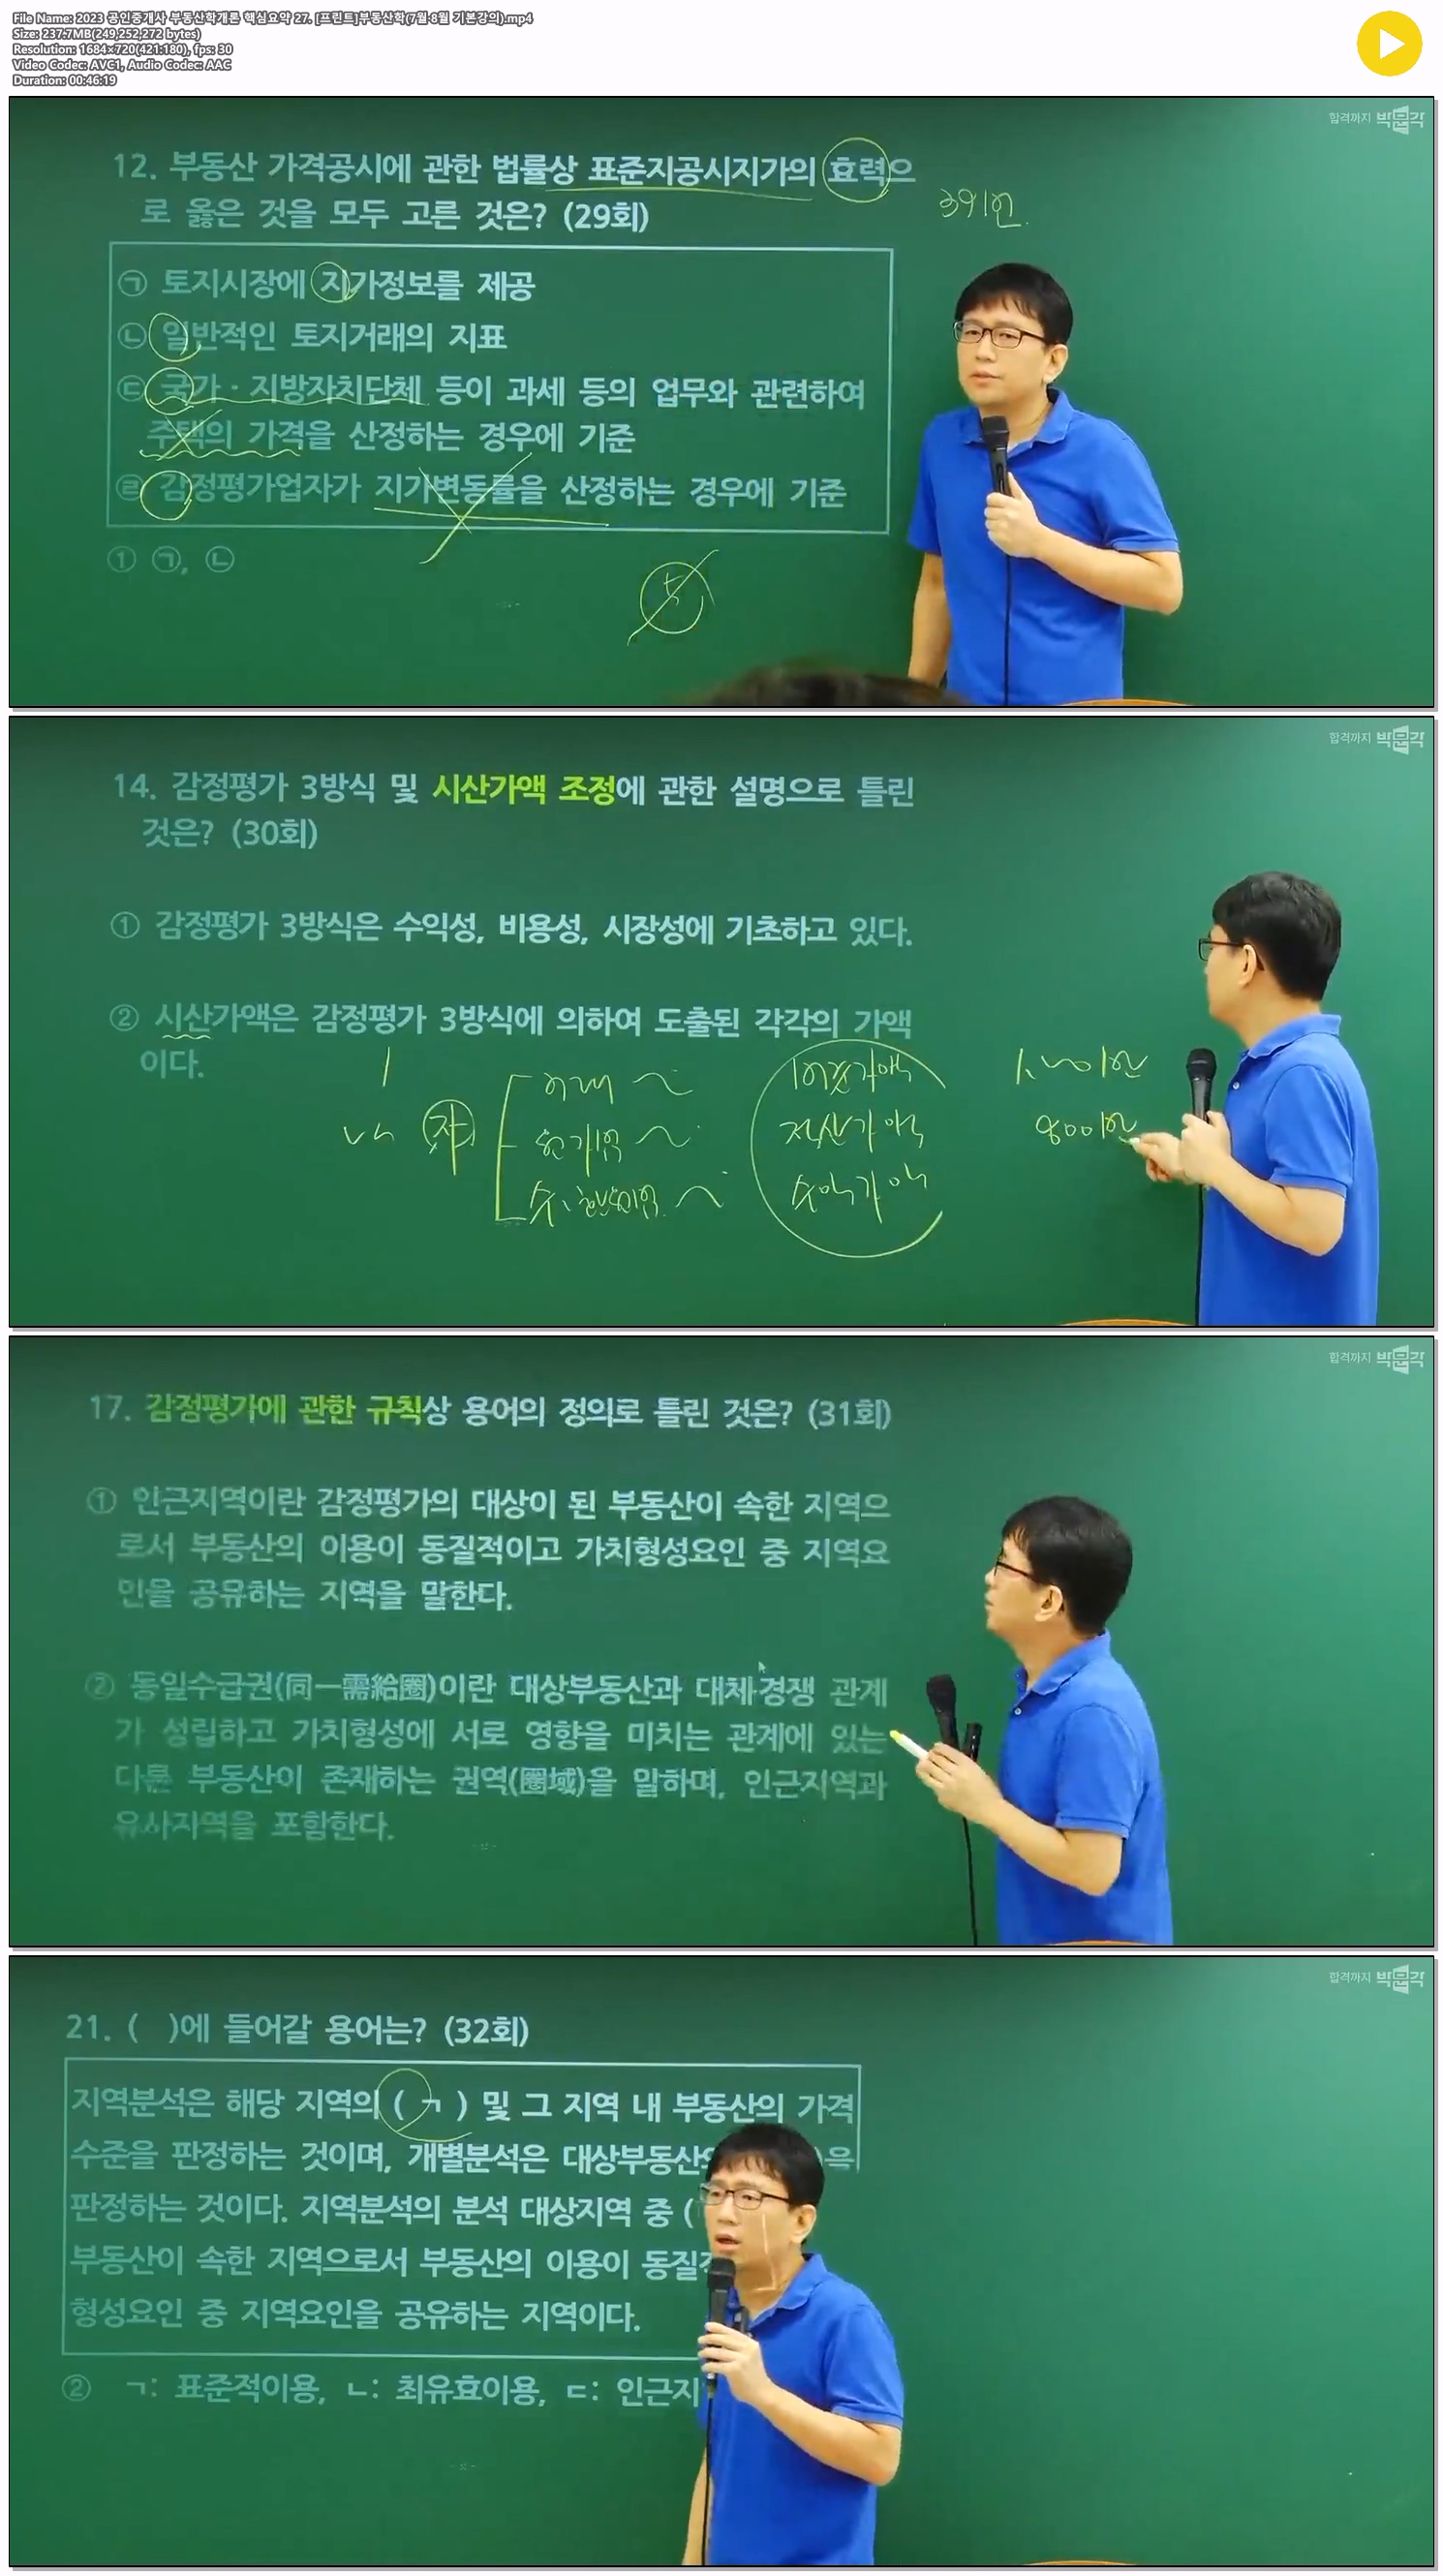 File Name: 2023 공인중개사 부동산학개론 핵심요약 27. [프린트]부동산학(7월-8월 기본강의).mp4
Size: 237.7MB(249,252,272 bytes)
Resolution: 1684×720(421:180), fps: 30
Video Codec: AVC1, Audio Codec: AAC
Duration: 00:46:19
합격까지 박문각
12. 부동산 가격공시에 관한 법률상 표준지공시지가의 효력으
로 옳은 것을 모두 고른 것은? (29회)
㉠ 토지시장에 지가정보를 제공
㉡ 일반적인 토지거래의 지표
㉢ 국가·지방자치단체 등이 과세 등의 업무와 관련하여
주택의 가격을 산정하는 경우에 기준
㉣ 감정평가업자가 지가변동률을 산정하는 경우에 기준
① ㉠, ㉡
합격까지 박문각
14. 감정평가 3방식 및 시산가액 조정에 관한 설명으로 틀린
것은? (30회)
① 감정평가 3방식은 수익성, 비용성, 시장성에 기초하고 있다.
② 시산가액은 감정평가 3방식에 의하여 도출된 각각의 가액
이다.
합격까지 박문각
17. 감정평가에 관한 규칙상 용어의 정의로 틀린 것은? (31회)
① 인근지역이란 감정평가의 대상이 된 부동산이 속한 지역으
로서 부동산의 이용이 동질적이고 가치형성요인 중 지역요
인을 공유하는 지역을 말한다.
② 동일수급권(同一需給圈)이란 대상부동산과 대체·경쟁 관계
가 성립하고 가치형성에 서로 영향을 미치는 관계에 있는
다른 부동산이 존재하는 권역(圈域)을 말하며, 인근지역과
유사지역을 포함한다.
합격까지 박문각
21. ( )에 들어갈 용어는? (32회)
지역분석은 해당 지역의 ( ㄱ ) 및 그 지역 내 부동산의 가격
수준을 판정하는 것이며, 개별분석은 대상부동산의 을
판정하는 것이다. 지역분석의 분석 대상지역 중 (
부동산이 속한 지역으로서 부동산의 이용이 동질
형성요인 중 지역요인을 공유하는 지역이다.
② ㄱ: 표준적이용, ㄴ: 최유효이용, ㄷ: 인근지